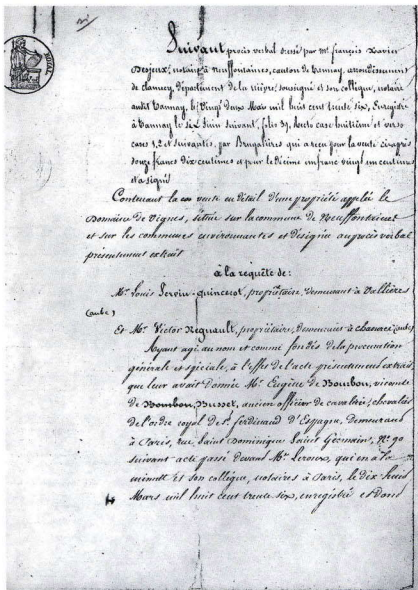 ROYAL
Suivant procès verbal dressé par Mr. françois Xavier
Desjeux, notaire à Neuffontaines, canton de Tannay, arrondissement
de clamecy, département de la nièvre, soussigné et son collègue, notaire
audit Tannay, le Vingt deux Mai mil huit cent trente six, Enregistré
à Tannay le six Juin suivant, folio 39, recto case huitième et verso
cases 1, 2 et suivantes, par Brugalières qui a reçu pour la vente ci après
douze francs dix centimes et pour le décime un franc vingt un centimes
et a signé
Contenant la vente en détail d'une propriété appelée le
Domaine de Vignes, située sur la commune de Neuffontaines
et sur les communes environnantes et désignée au procès verbal
présentement extrait
à la requête de :
Mr. Louis quincerot, propriétaire, demeurant à Vallières
(aube)
Et Mr. Victor Regnault, propriétaire, demeurant à chanacé (aube)
Ayant agi au nom et comme fondés de la procuration
générale et spéciale, à l'effet de l'acte présentement extrait
que leur avait donnée Mr. Eugène de Bourbon, vicomte
de Bourbon, Busset, ancien officier de cavalerie, chevalier
de l'ordre royal de St. ferdinand d'Espagne, demeurant
à Paris, rue Saint Dominique Saint Germain, No. 90
suivant acte passé devant Me. Leroux, qui en a la
minute et son collègue, notaires à Paris, le dix huit
Mars mil huit cent trente six, enregistré et dont